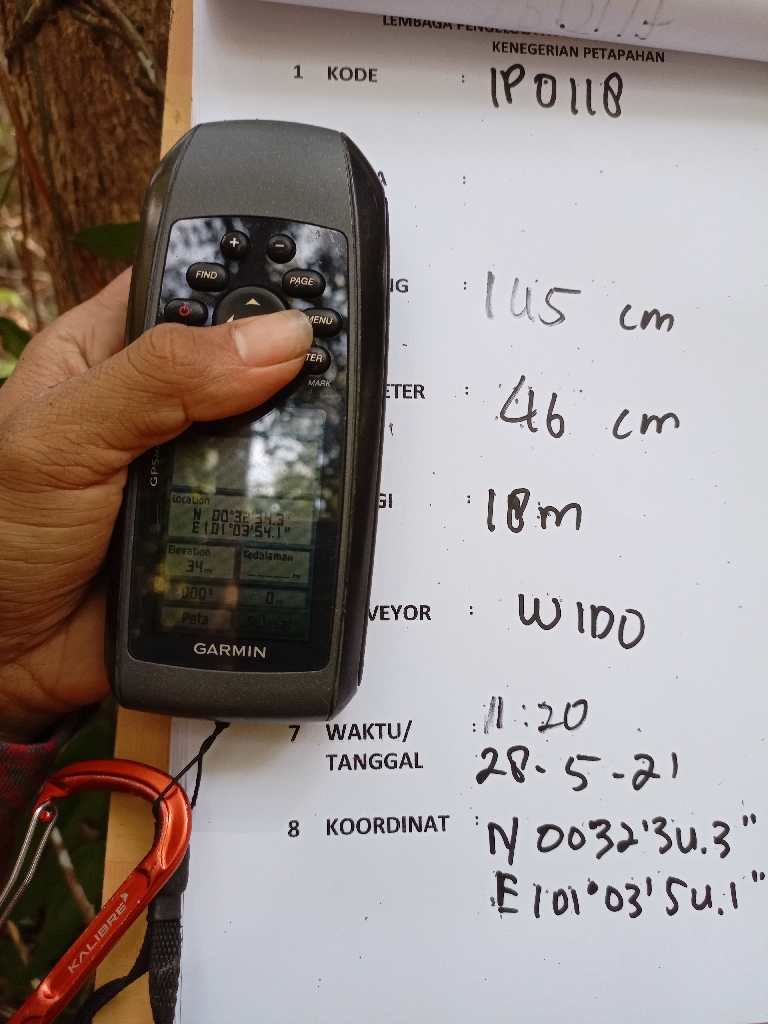 KENEGERIAN PETAPAHAN
1 KODE : IP0118
:
NG 145 cm
ETER : 46 cm
GI : 18m
VEYOR : WIDO
7 WAKTU/ : 11:20
TANGGAL 28-5-21
8 KOORDINAT : N 0032'34.3"
E 101°03'54.1"
+ -
FIND PAGE
MENU
TER
MARK
GPS
Location
N 00°32'34.3"
E101°03'54.1"
Elevation Kedalaman
34m m
0001 0m
Peta
GARMIN
KALIBRE